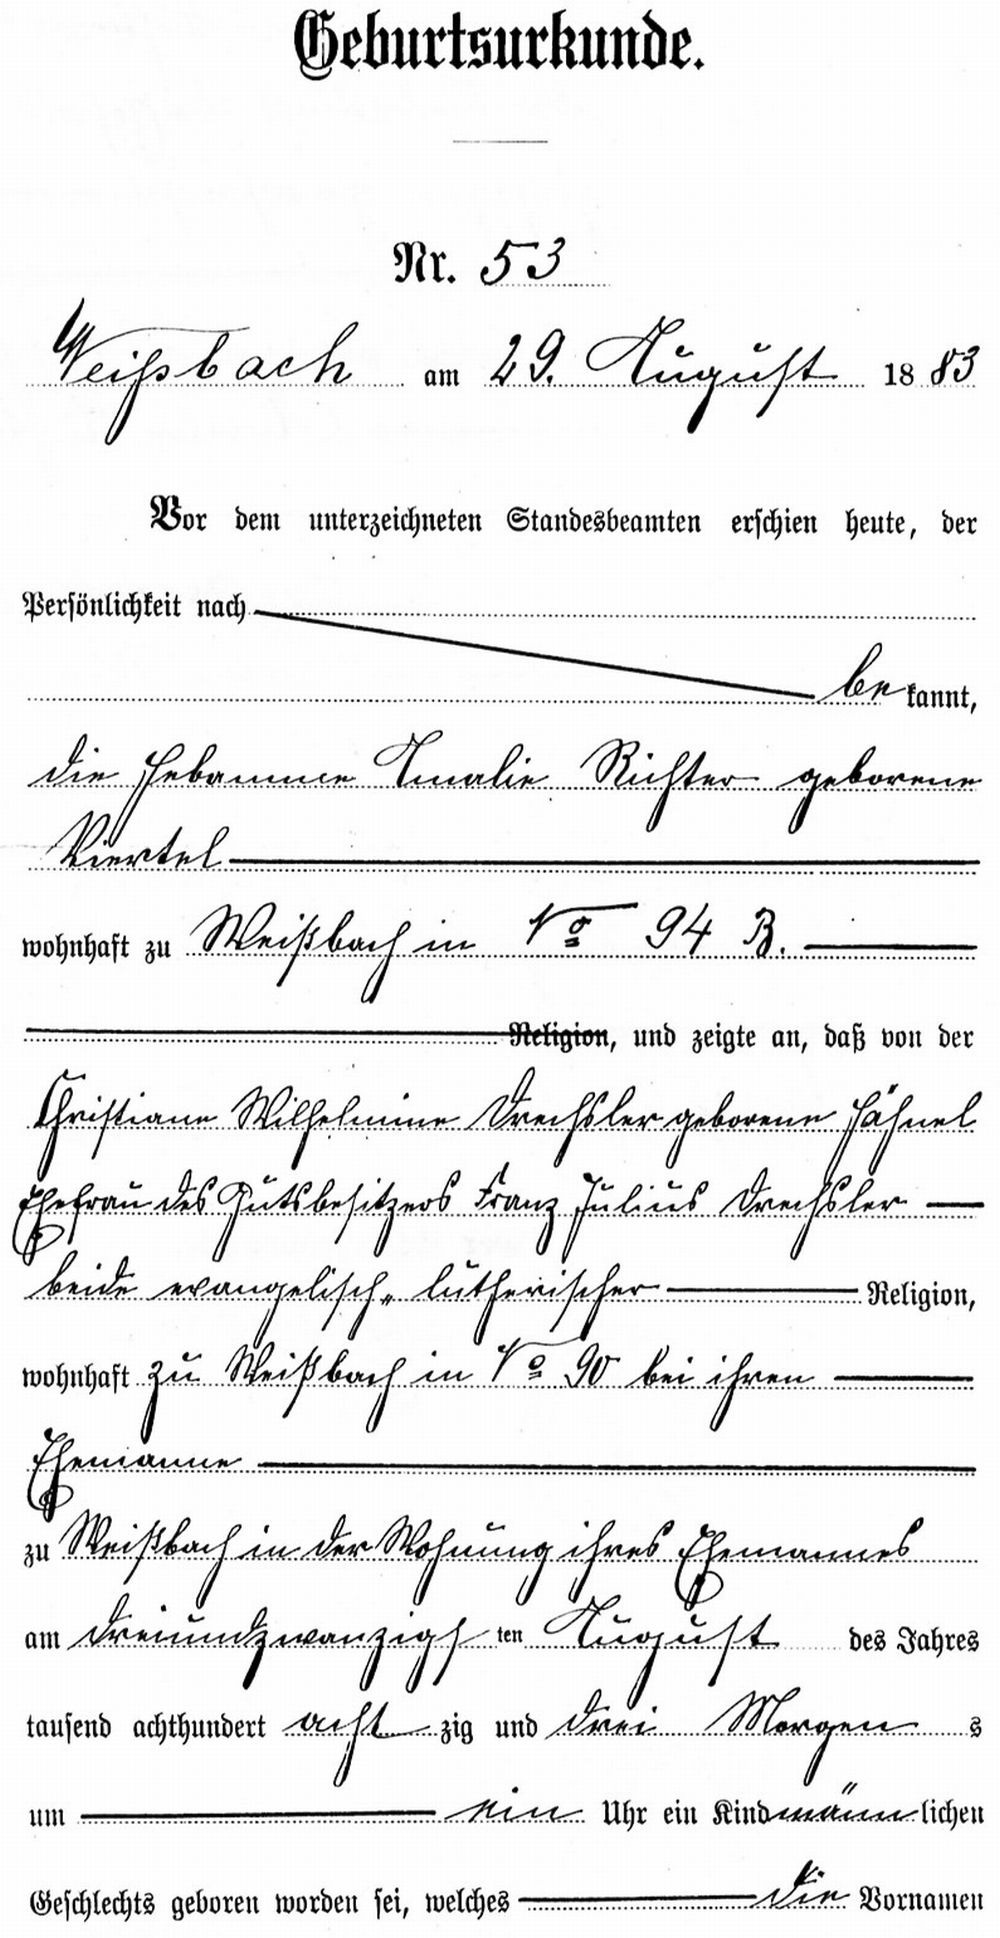 Geburtsurkunde.
Nr. 53
Weißbach am 29. August 1883
Vor dem unterzeichneten Standesbeamten erschien heute, der
Persönlichkeit nach
bekannt,
die Hebamme Amalie Richter geborene
Viertel
wohnhaft zu Weißbach in No 94 B.
Religion, und zeigte an, daß von der
Christiane Wilhelmine Drechsler geborene Hähnel
Ehefrau des Gutsbesitzers Franz Julius Drechsler
beide evangelisch-lutherischer Religion,
wohnhaft zu Weißbach in No 90 bei ihren
Ehemanne
zu Weißbach in der Wohnung ihres Ehemannes
am dreiundzwanzigsten August des Jahres
tausend achthundert achtzig und drei Morgens
um ein Uhr ein Kind männlichen
Geschlechts geboren worden sei, welches die Vornamen